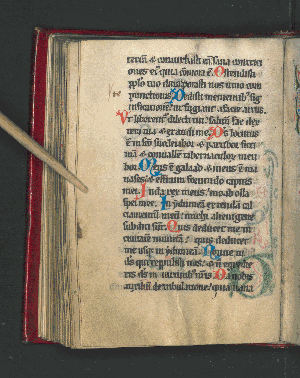 terram et conturbasti eam sana contritiones
eius quia commota est Ostendisti
populo tuo dura potasti nos vino compunctionis
Dedisti metuentibus te significationem
ut fugiant a facie arcus
Ut liberentur dilecti tui salvum fac dextera
tua et exaudi me Deus locutus
est in sancto suo letabor et partibor
et convallem tabernaculorum metibor
Meus est galaad et meus est manasses
et effraim fortitudo capitis
mei Iuda rex meus moab olla
spei mee In ydumeam extendam calciamentum
meum michi alienigene
subditi sunt Quis deducet me in
civitatem munitam quis deducet
me usque in ydumeam Nonne tu
deus qui reppulisti nos et non egredieris
deus in virtutibus nostris Da nobis
auxilium de tribulatione quia vana